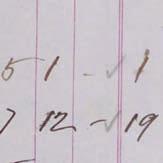 51 - ✓ 1
7 12 - ✓ 19